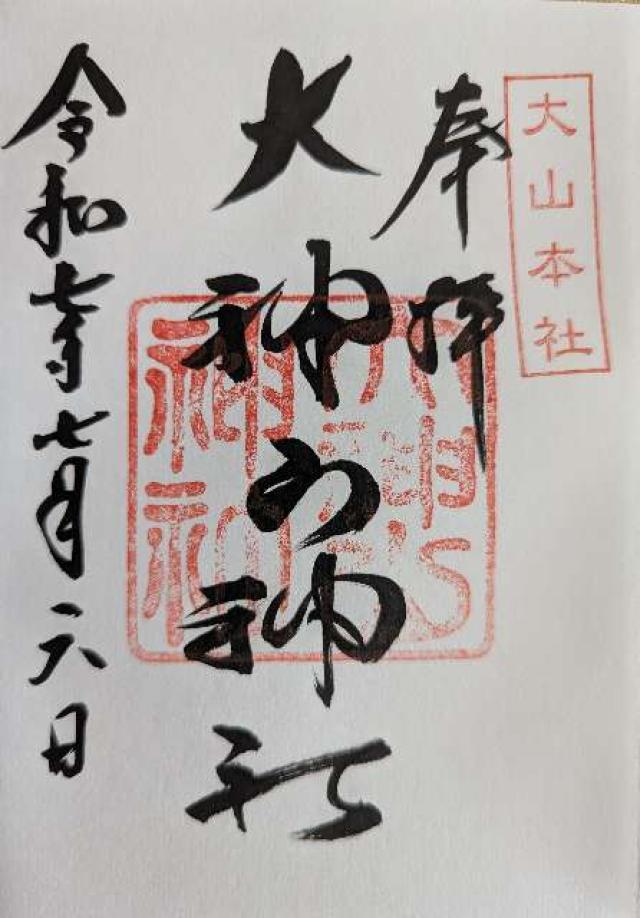 大山本社
奉拝
大神山神社
令和七年七月六日